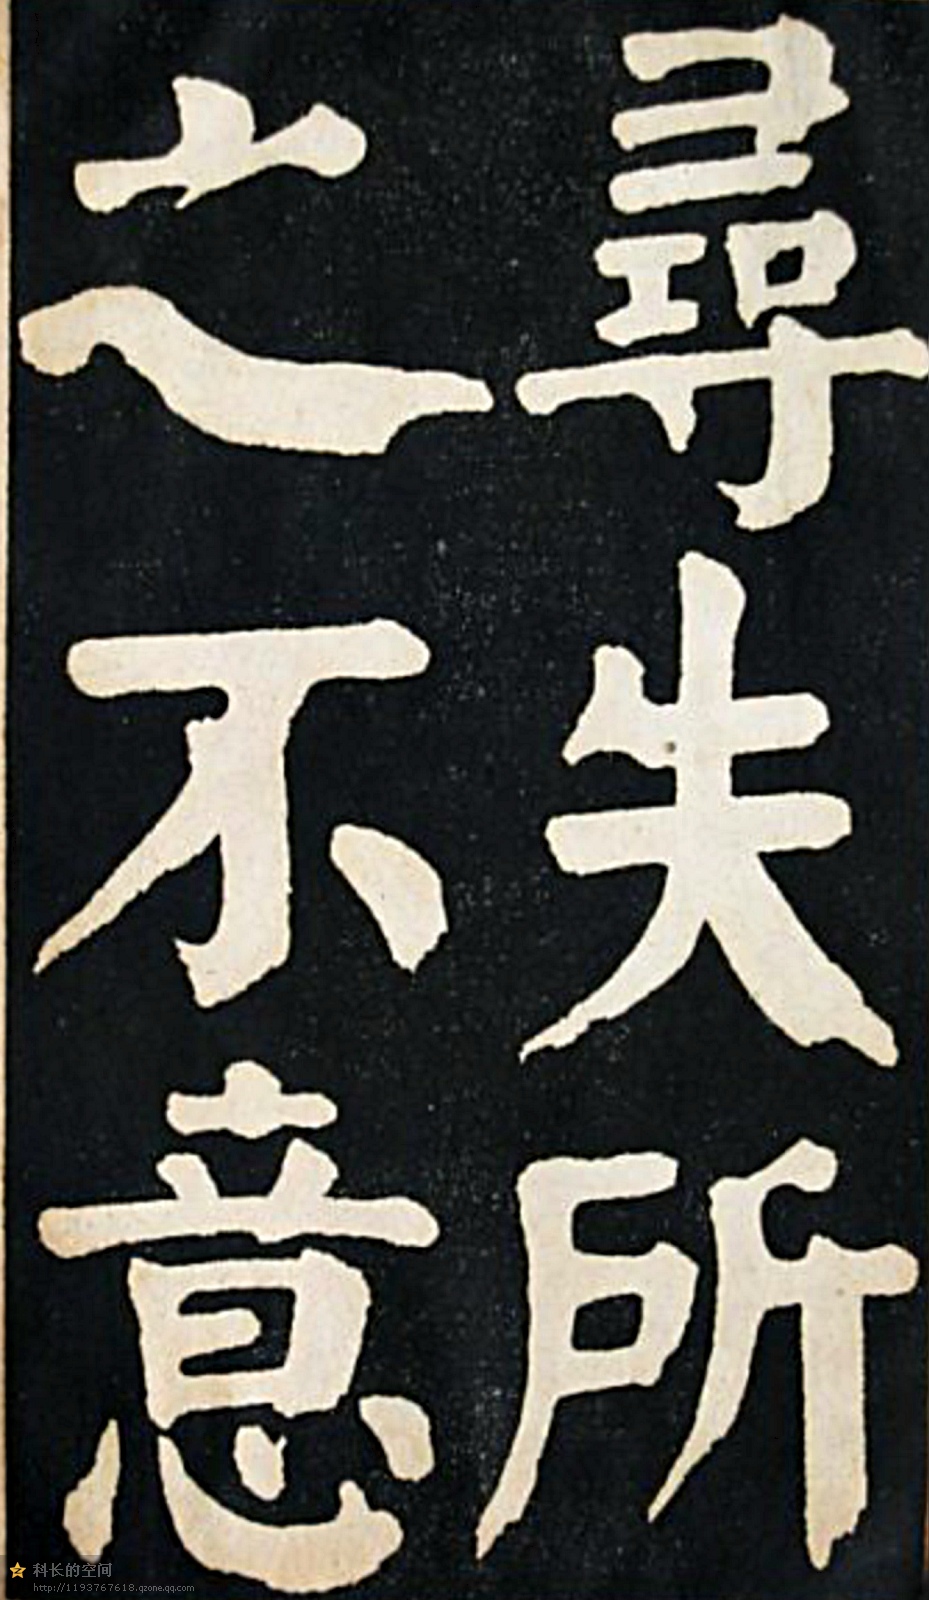 尋失所
之不意
科长的空间
http://1193767618.qzone.qq.com